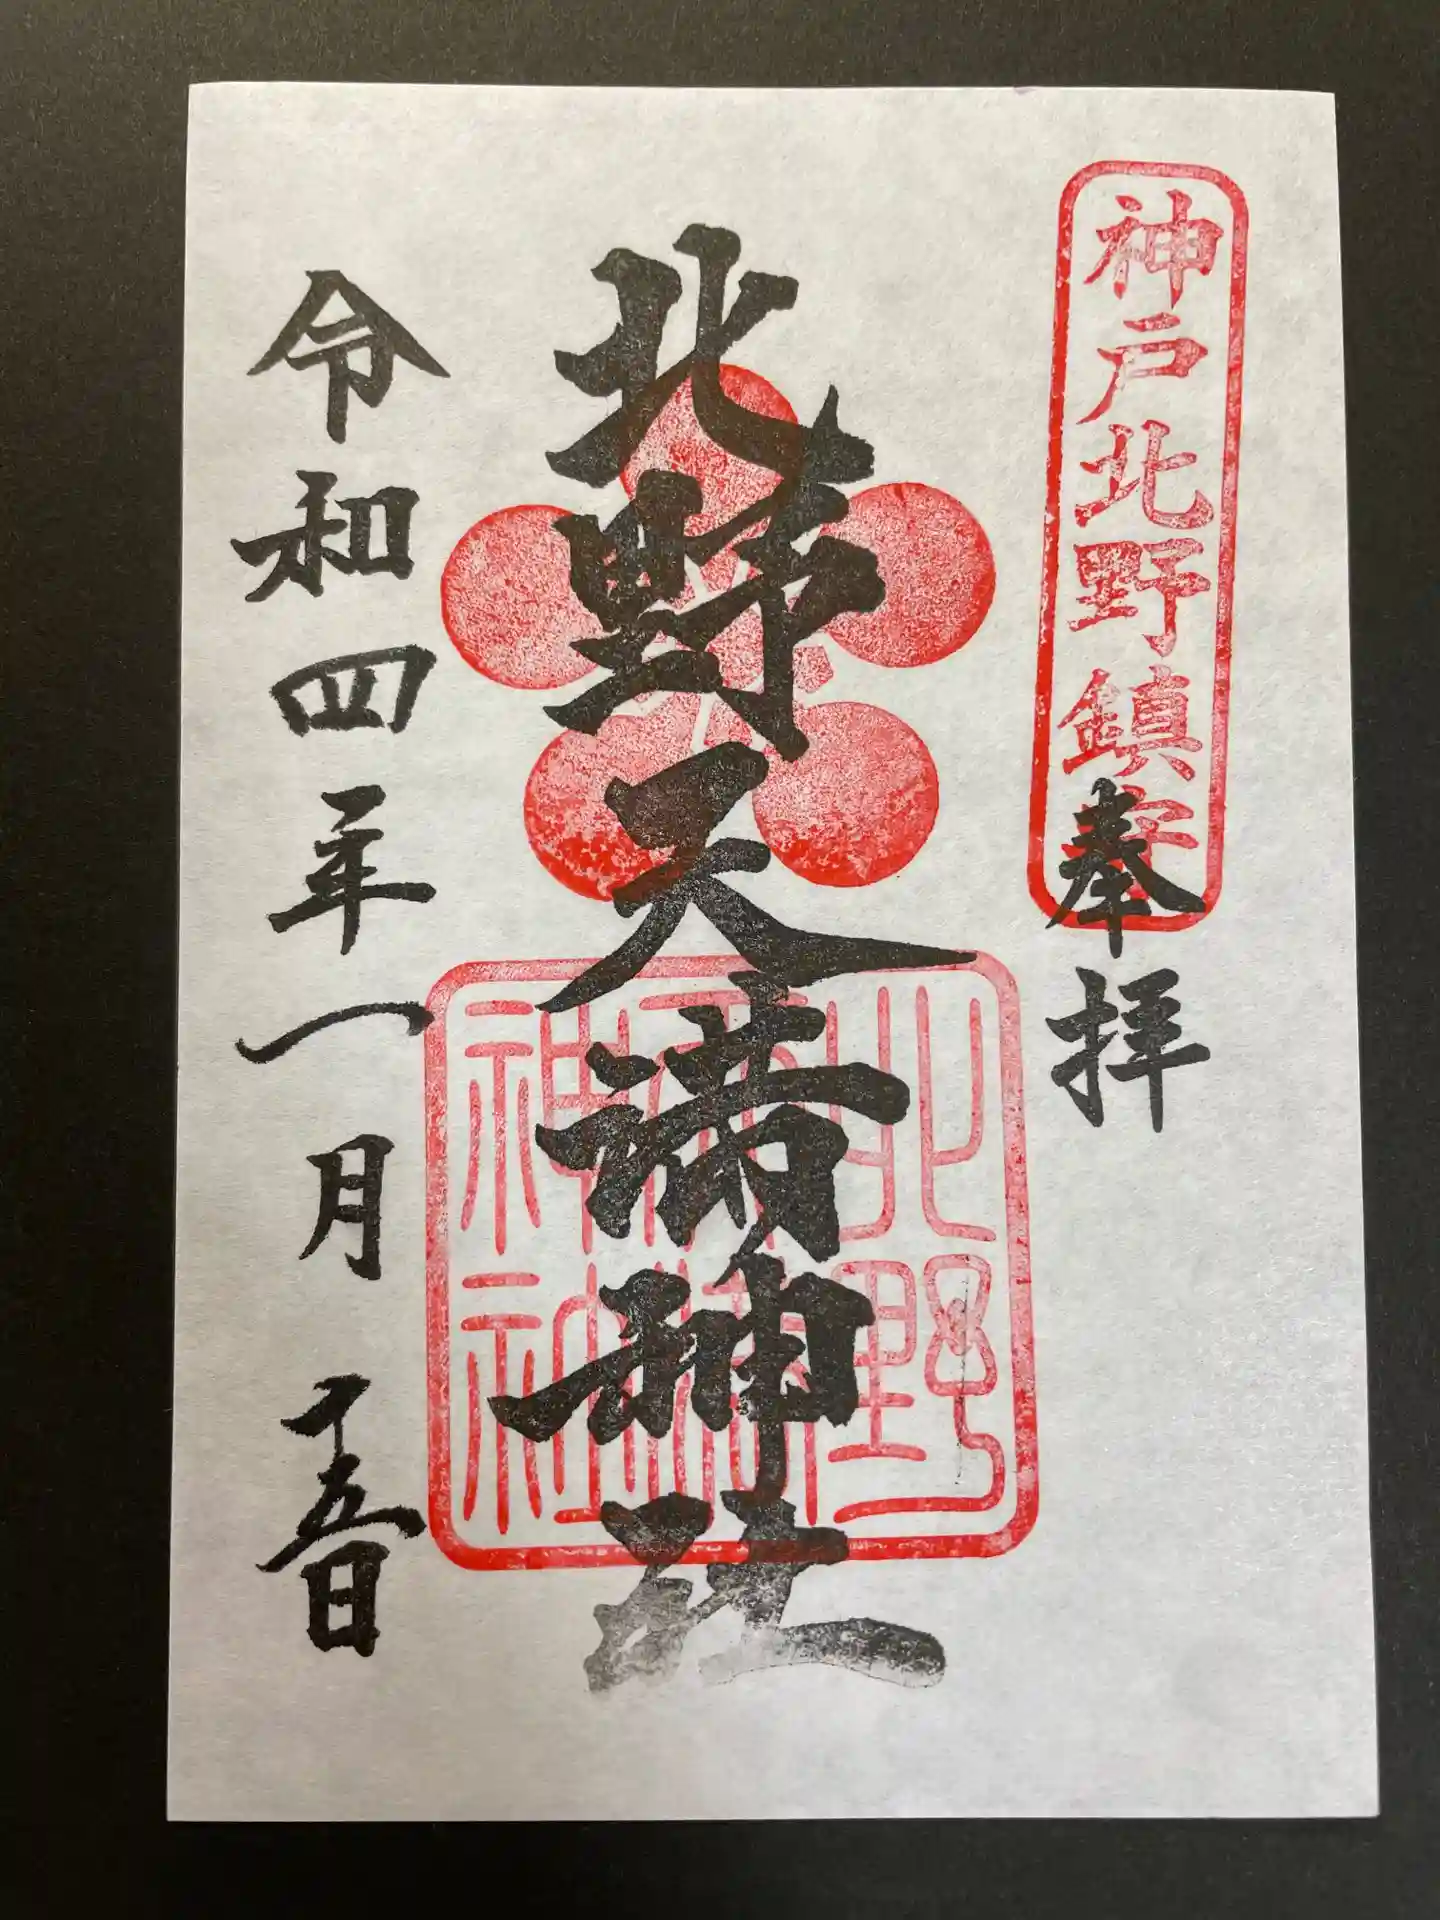 神戸北野鎮守
奉拝
北野天満神社
北野
天満
神社
令和四年一月十五日